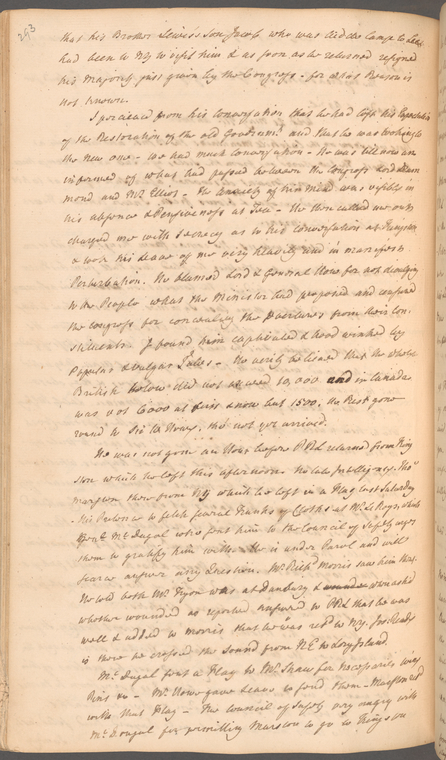 293
that his Brother Lewis's Son Jacob, who was Aid de Camp to Lee
had been to NY to visit him & as soon as he returned resigned
his Majority just given by the Congress - for what Reason is
not known.
I perceived from his Conversation that he had lost his Expectation
of the Restoration of the old Governmt and that he was looking to
the New one - we had much Conversation - He was till now un
informed of what had passed between the Congress Lord Drum
mond and Mr Elliot - The Anxiety of his Mind was visible in
his absence & Pensiveness at Tea - He then called me out
charged me with Secrecy as to his Conversation at Kingston
& took his leave of me very heavily and in manifest
Perturbation. He blamed Lord & General Howe for not divulging
to the People what the Minister had proposed and censured
the Congress for concealing the Overtures from their Con
stituents. I found him captivated & hood winked by
Popular & vulgar Tales - He verily believed that the whole
British below did not exceed 10,000 and in Canada
was not 6000 at first & now but 1500. the Rest gone
round to Sir Wm Howe, tho' not yet arrived.
He was not gone an Hour before PRL returned from King
ston which he left this afternoon. He has Intelligence, Tho.
Marston there from NY which he left in a Flag last Saturday
- His Pretence to fetch several Trunks of Cloths at Mr Le Roys, which
Genl Mc Dugal who sent him to the Council of Safety urges
them to gratify him with. He is under Parol and will
scarce answer any Question. Mr Richd Morris saw him there.
He told both Mr Tryon was at Danbury & being asked
whether wounded as reported answered to PRL that he was
well & added to Morris that he was retd to NY. Jos. Reads
is there he crossed the Sound from NE to Long Island.
Mc Dugal sent a Flag to Mr Shaw for Necessaries
Pins &c - Mr Howe gave Leave to send them - Marston came
with that Flag - The Council of Safety very angry with
Mc Dougal for permitting Marston to go to Kingston